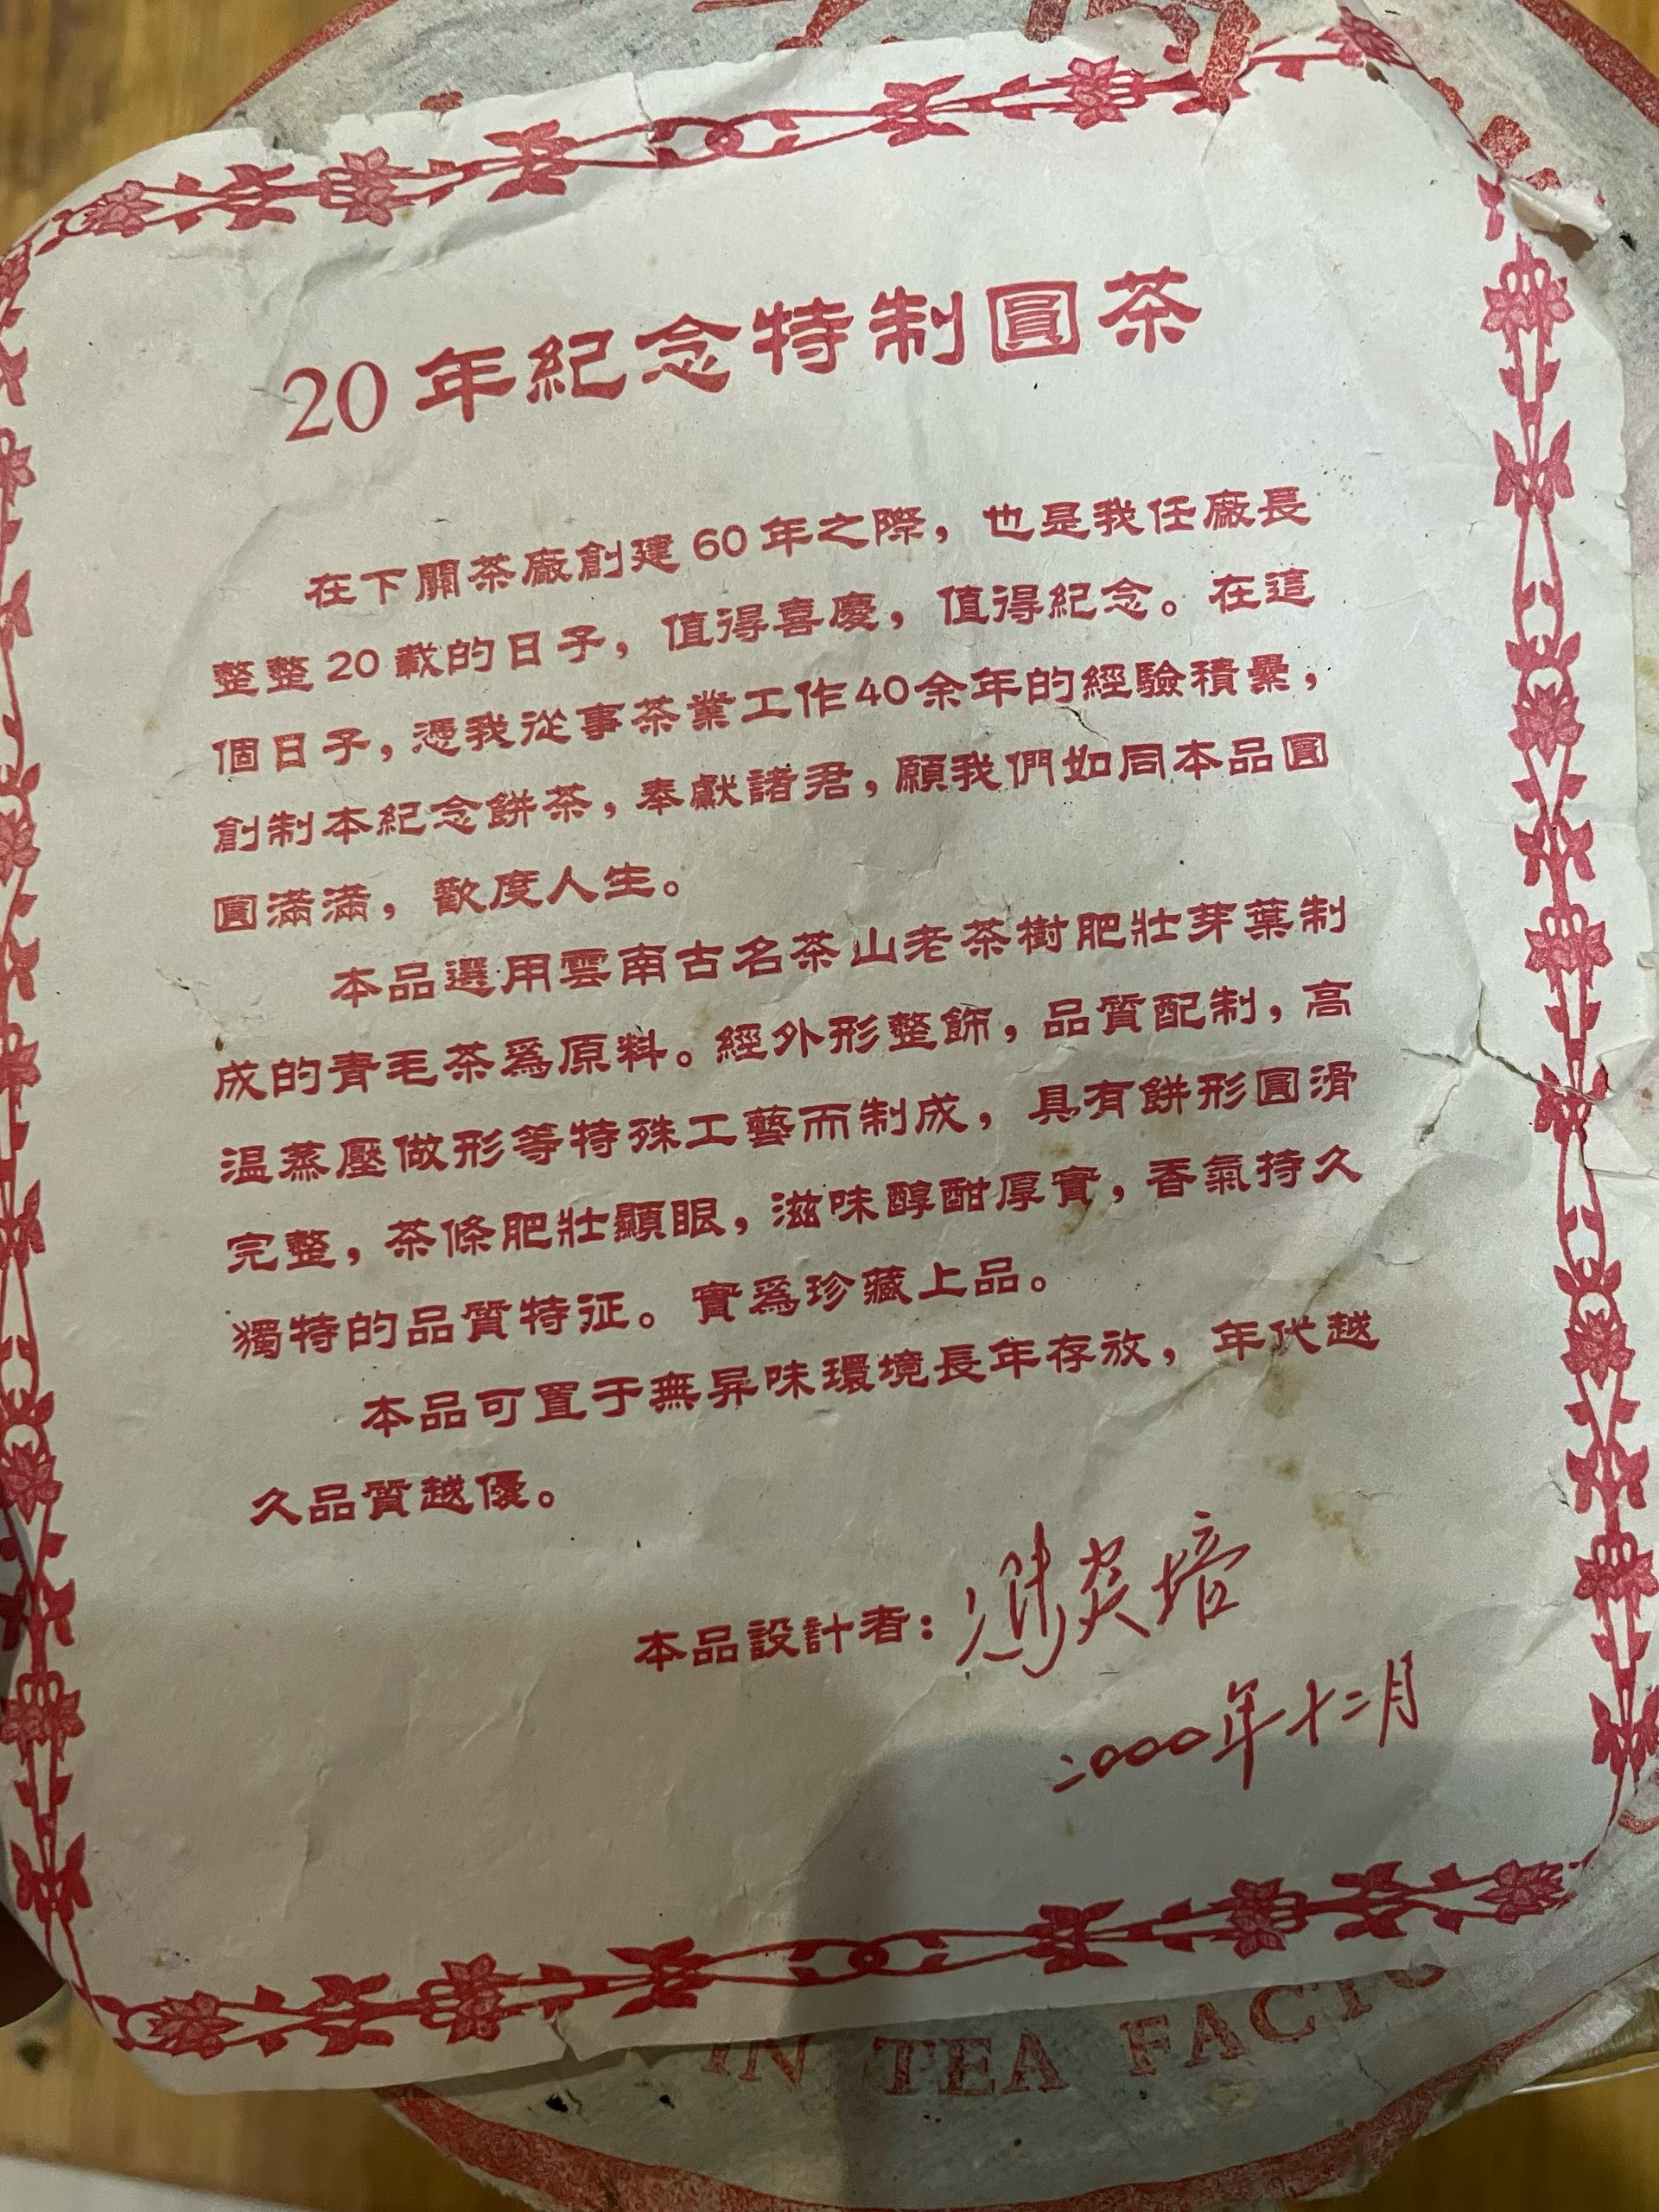 20年紀念特制圓茶
在下關茶廠創建60年之際，也是我任廠長
整整20載的日子，值得喜慶，值得紀念。在這
個日子，憑我從事茶業工作40余年的經驗積纍，
創制本紀念餅茶，奉獻諸君，願我們如同本品圓
圓滿滿，歡度人生。
本品選用雲南古名茶山老茶樹肥壯芽葉制
成的青毛茶爲原料。經外形整飾，品質配制，高
温蒸壓做形等特殊工藝而制成，具有餅形圓滑
完整，茶條肥壯顯眼，滋味醇酣厚實，香氣持久
獨特的品質特征。實爲珍藏上品。
本品可置于無异味環境長年存放，年代越
久品質越優。
本品設計者：馮炎培
二000年十二月
IN TEA FACTO